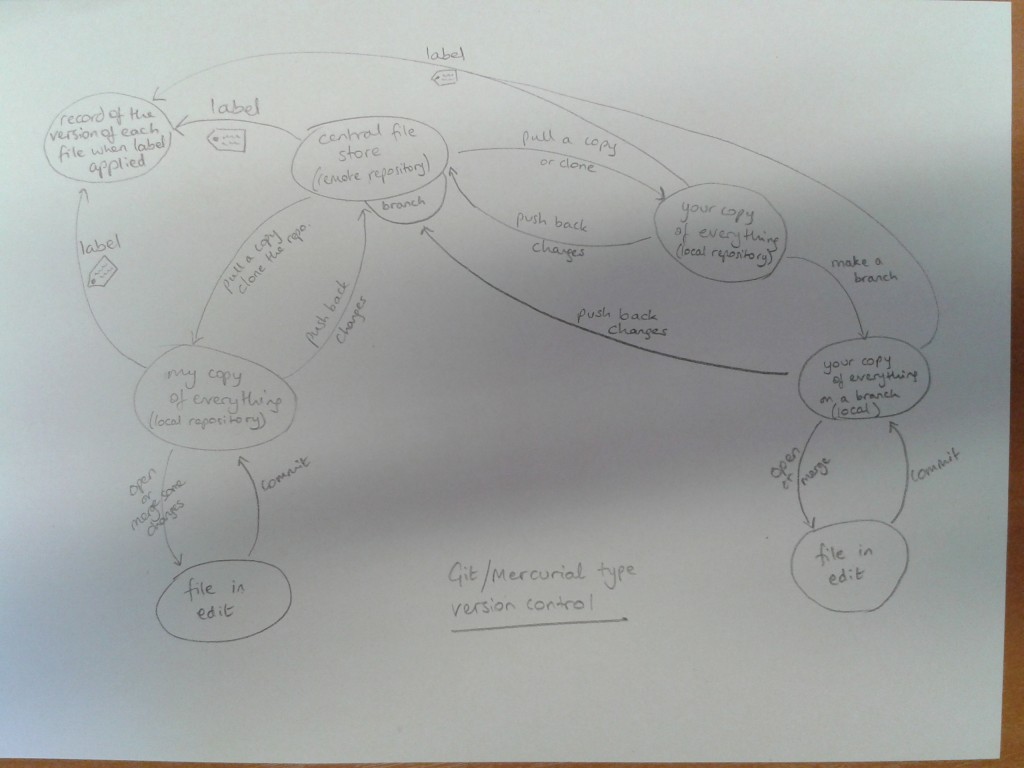 label
record of the
version of each
file when label
applied
label
central file
store
(remote repository)
branch
pull a copy
or clone
your copy
of everything
(local repository)
push back
changes
make a
branch
label
pull a copy
clone the repo.
push back
changes
push back
changes
my copy
of everything
(local repository)
your copy
of everything
on a branch
(local)
open
or
merge some
changes
commit
open
or
merge
commit
file in
edit
file in
edit
Git/Mercurial type
version control